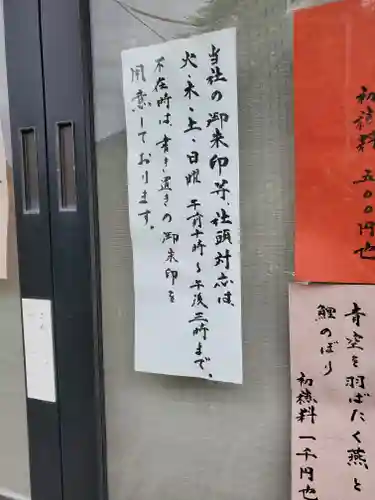 当社の御朱印等、社頭対応は
火・木・土・日曜 午前十時〜午後三時まで。
不在時は書き置きの御朱印を
用意しております。
初穂料 五〇〇円也
青空を羽ばたく燕と
鯉のぼり
初穂料 一千円也